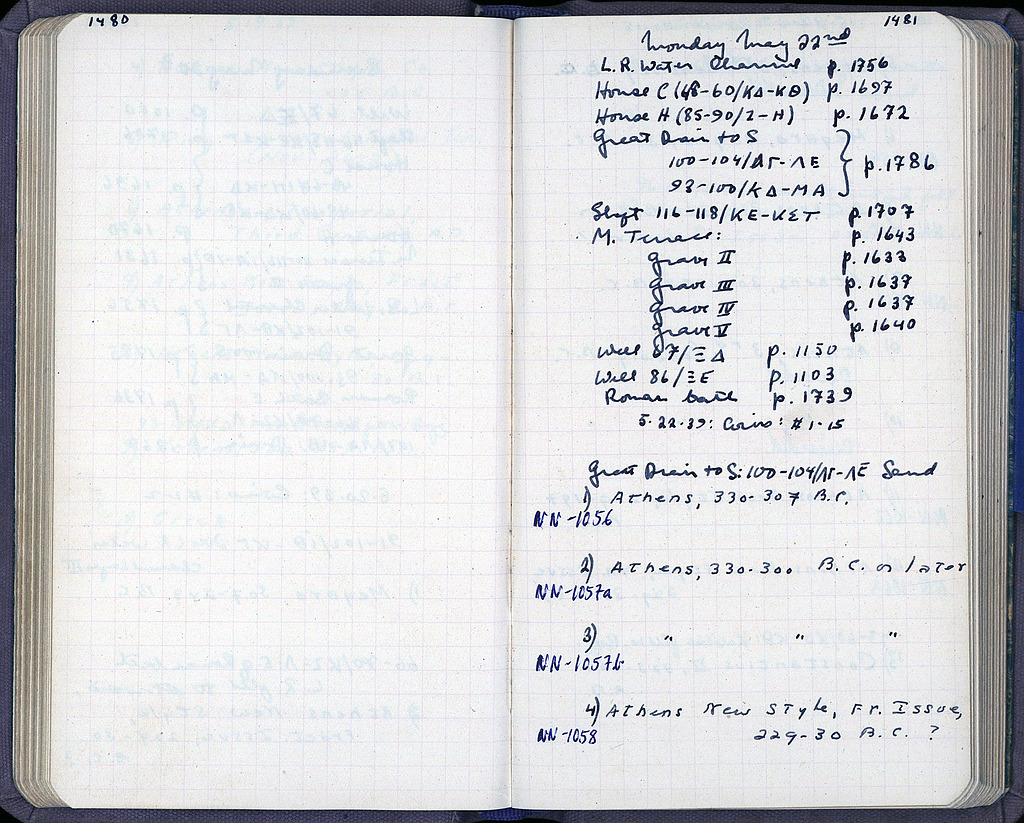 1480
1481
Monday May 22nd
L.R. Water Channel p. 1756
House C (48-60/ΚΔ-ΚΘ) p. 1697
House H (85-90/Ζ-Η) p. 1672
Great Drain to S
100-104/ΛΓ-ΛΕ } p. 1786
93-100/ΚΔ-ΜΑ
116-118/ΚΕ-ΚΣΤ p. 1707
M. Terrace: p. 1643
Grave II p. 1633
Grave III p. 1637
Grave IV p. 1637
Grave V p. 1640
Well 67/ΞΔ p. 1150
Well 86/ΞΕ p. 1103
Roman bath p. 1739
5-22-39: Coins: #1-15
Great Drain to S: 100-104/ΛΓ-ΛΕ Sand
1) Athens, 330-307 B.C.
NN-1056
2) Athens, 330-300 B.C. or later
NN-1057a
3) " " "
NN-1057b
4) Athens New Style, Fr. Issue,
NN-1058 229-30 B.C. ?